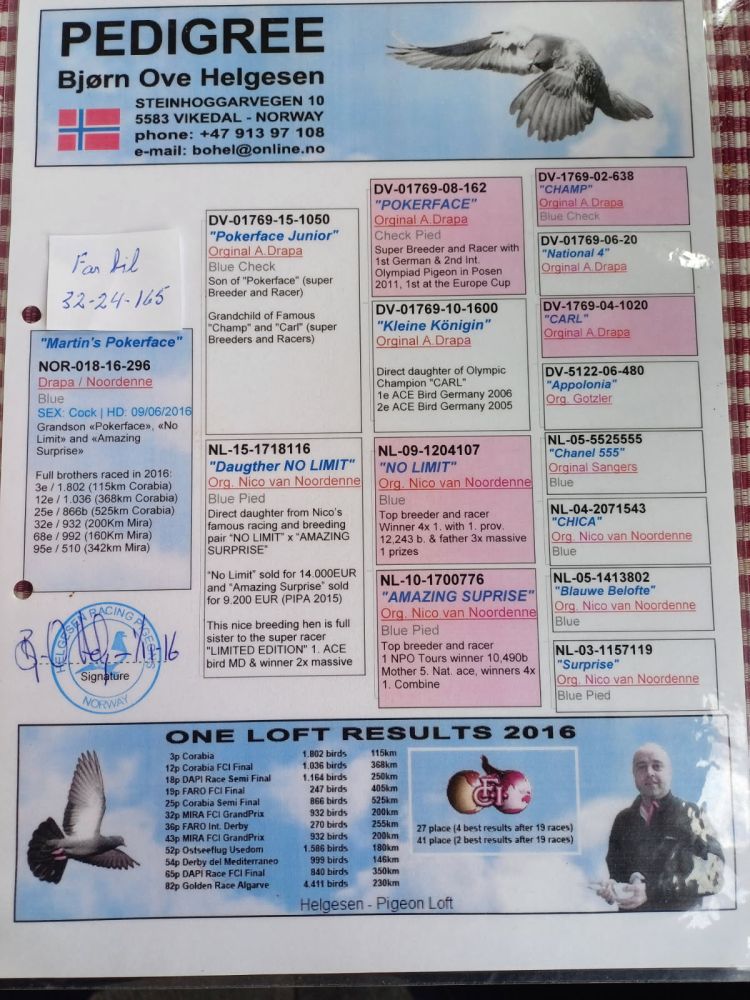 PEDIGREE
Bjørn Ove Helgesen
STEINHOGGARVEGEN 10
5583 VIKEDAL - NORWAY
phone: +47 913 97 108
e-mail: bohel@online.no
Far til
32-24-165
"Martin's Pokerface"
NOR-018-16-296
Drapa / Noordenne
Blue
SEX: Cock | HD: 09/06/2016
Grandson «Pokerface», «No
Limit» and «Amazing
Surprise»
Full brothers raced in 2016:
3e / 1.802 (115km Corabia)
12e / 1.036 (368km Corabia)
25e / 866b (525km Corabia)
32e / 932 (200Km Mira)
68e / 992 (160Km Mira)
95e / 510 (342km Mira)
HELGESEN RACING PIGEONS
NORWAY
Signature
DV-01769-15-1050
"Pokerface Junior"
Orginal A.Drapa
Blue Check
Son of "Pokerface" (super
Breeder and Racer)
Grandchild of Famous
"Champ" and "Carl" (super
Breeders and Racers)
NL-15-1718116
"Daugther NO LIMIT"
Org. Nico van Noordenne
Blue Pied
Direct daughter from Nico's
famous racing and breeding
pair "NO LIMIT" x "AMAZING
SURPRISE"
"No Limit" sold for 14.000EUR
and "Amazing Surprise" sold
for 9.200 EUR (PIPA 2015)
This nice breeding hen is full
sister to the super racer
"LIMITED EDITION" 1. ACE
bird MD & winner 2x massive
DV-01769-08-162
"POKERFACE"
Orginal A.Drapa
Check Pied
Super Breeder and Racer with
1st German & 2nd Int.
Olympiad Pigeon in Posen
2011, 1st at the Europe Cup
DV-01769-10-1600
"Kleine Königin"
Orginal A.Drapa
Direct daughter of Olympic
Champion "CARL"
1e ACE Bird Germany 2006
2e ACE Bird Germany 2005
NL-09-1204107
"NO LIMIT"
Org. Nico van Noordenne
Blue
Top breeder and racer
Winner 4x 1. with 1. prov.
12,243 b. & father 3x massive
1 prizes
NL-10-1700776
"AMAZING SUPRISE"
Org. Nico van Noordenne
Blue Pied
Top breeder and racer
1 NPO Tours winner 10,490b
Mother 5. Nat. ace, winners 4x
1. Combine
DV-1769-02-638
"CHAMP"
Orginal A.Drapa
Blue Check
DV-01769-06-20
"National 4"
Orginal A.Drapa
DV-1769-04-1020
"CARL"
Orginal A.Drapa
DV-5122-06-480
"Appolonia"
Org. Gotzler
NL-05-5525555
"Chanel 555"
Orginal Sangers
Blue
NL-04-2071543
"CHICA"
Org. Nico van Noordenne
Blue
NL-05-1413802
"Blauwe Belofte"
Org. Nico van Noordenne
Blue
NL-03-1157119
"Surprise"
Org. Nico van Noordenne
Blue Pied
ONE LOFT RESULTS 2016
3p Corabia 1.802 birds 115km
12p Corabia FCI Final 1.036 birds 368km
18p DAPI Race Semi Final 1.164 birds 250km
19p FARO FCI Final 247 birds 405km
25p Corabia Semi Final 866 birds 525km
32p MIRA FCI GrandPrix 932 birds 200km
36p FARO Int. Derby 270 birds 255km
43p MIRA FCI GrandPrix 932 birds 200km
52p Ostseeflug Usedom 1.586 birds 180km
54p Derby del Mediterraneo 999 birds 146km
65p DAPI Race FCI Final 840 birds 350km
82p Golden Race Algarve 4.411 birds 230km
FCI
27 place (4 best results after 19 races)
41 place (2 best results after 19 races)
Helgesen - Pigeon Loft